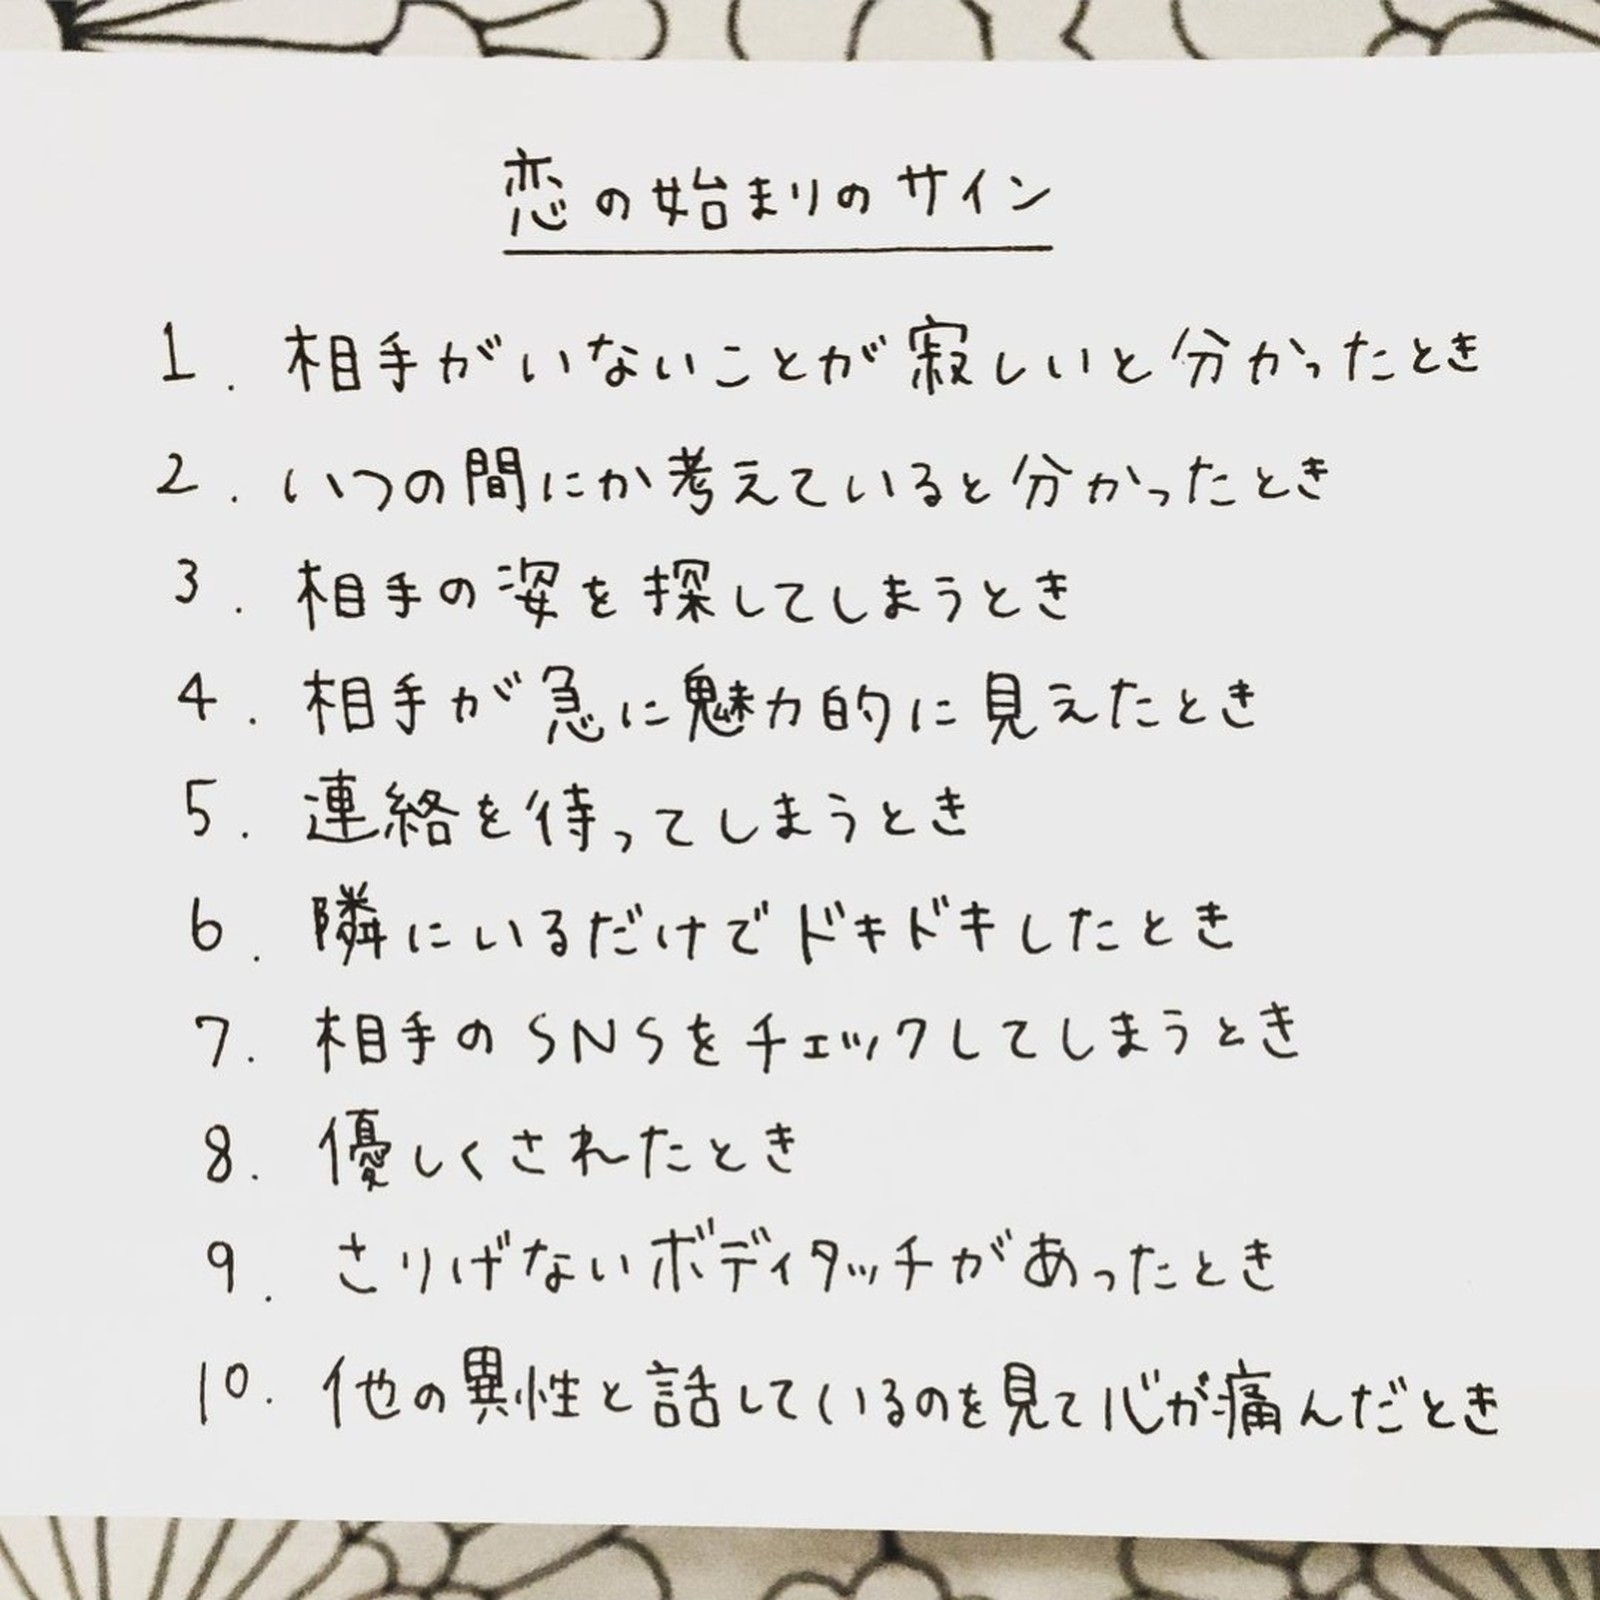 恋の始まりのサイン
1. 相手がいないことが寂しいと分かったとき
2. いつの間にか考えていると分かったとき
3. 相手の姿を探してしまうとき
4. 相手が急に魅力的に見えたとき
5. 連絡を待ってしまうとき
6. 隣にいるだけでドキドキしたとき
7. 相手のSNSをチェックしてしまうとき
8. 優しくされたとき
9. さりげないボディタッチがあったとき
10. 他の異性と話しているのを見て心が痛んだとき